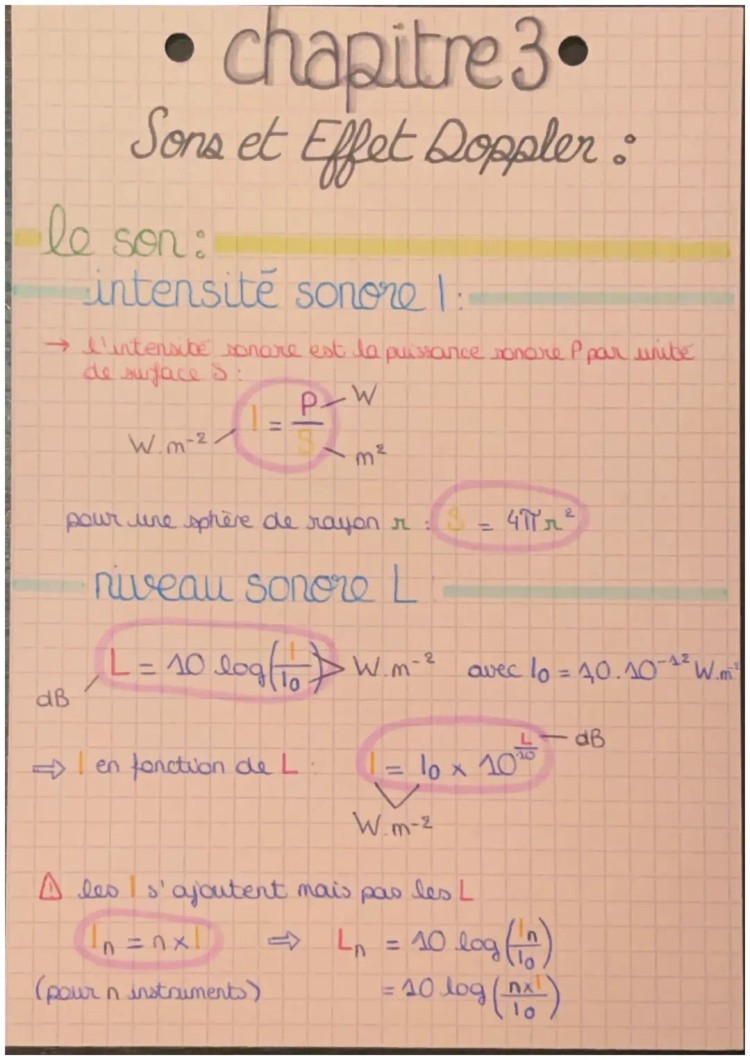 • chapitre 3 •
Sons et Effet Doppler :
le son :
intensité sonore I :
→ l'intensité sonore est la puissance sonore P par unité
de surface S :
W.m⁻² I = P/S W m²
pour une sphère de rayon r : S = 4πr²
niveau sonore L
dB L = 10 log(I/I0) W.m⁻² avec I0 = 1,0.10⁻¹² W.m⁻²
⇒ I en fonction de L : I = I0 × 10^(L/10) dB
W.m⁻²
⚠ les I s'ajoutent mais pas les L
In = n × I ⇒ Ln = 10 log(In/I0)
(pour n instruments) = 10 log(n×I/I0)